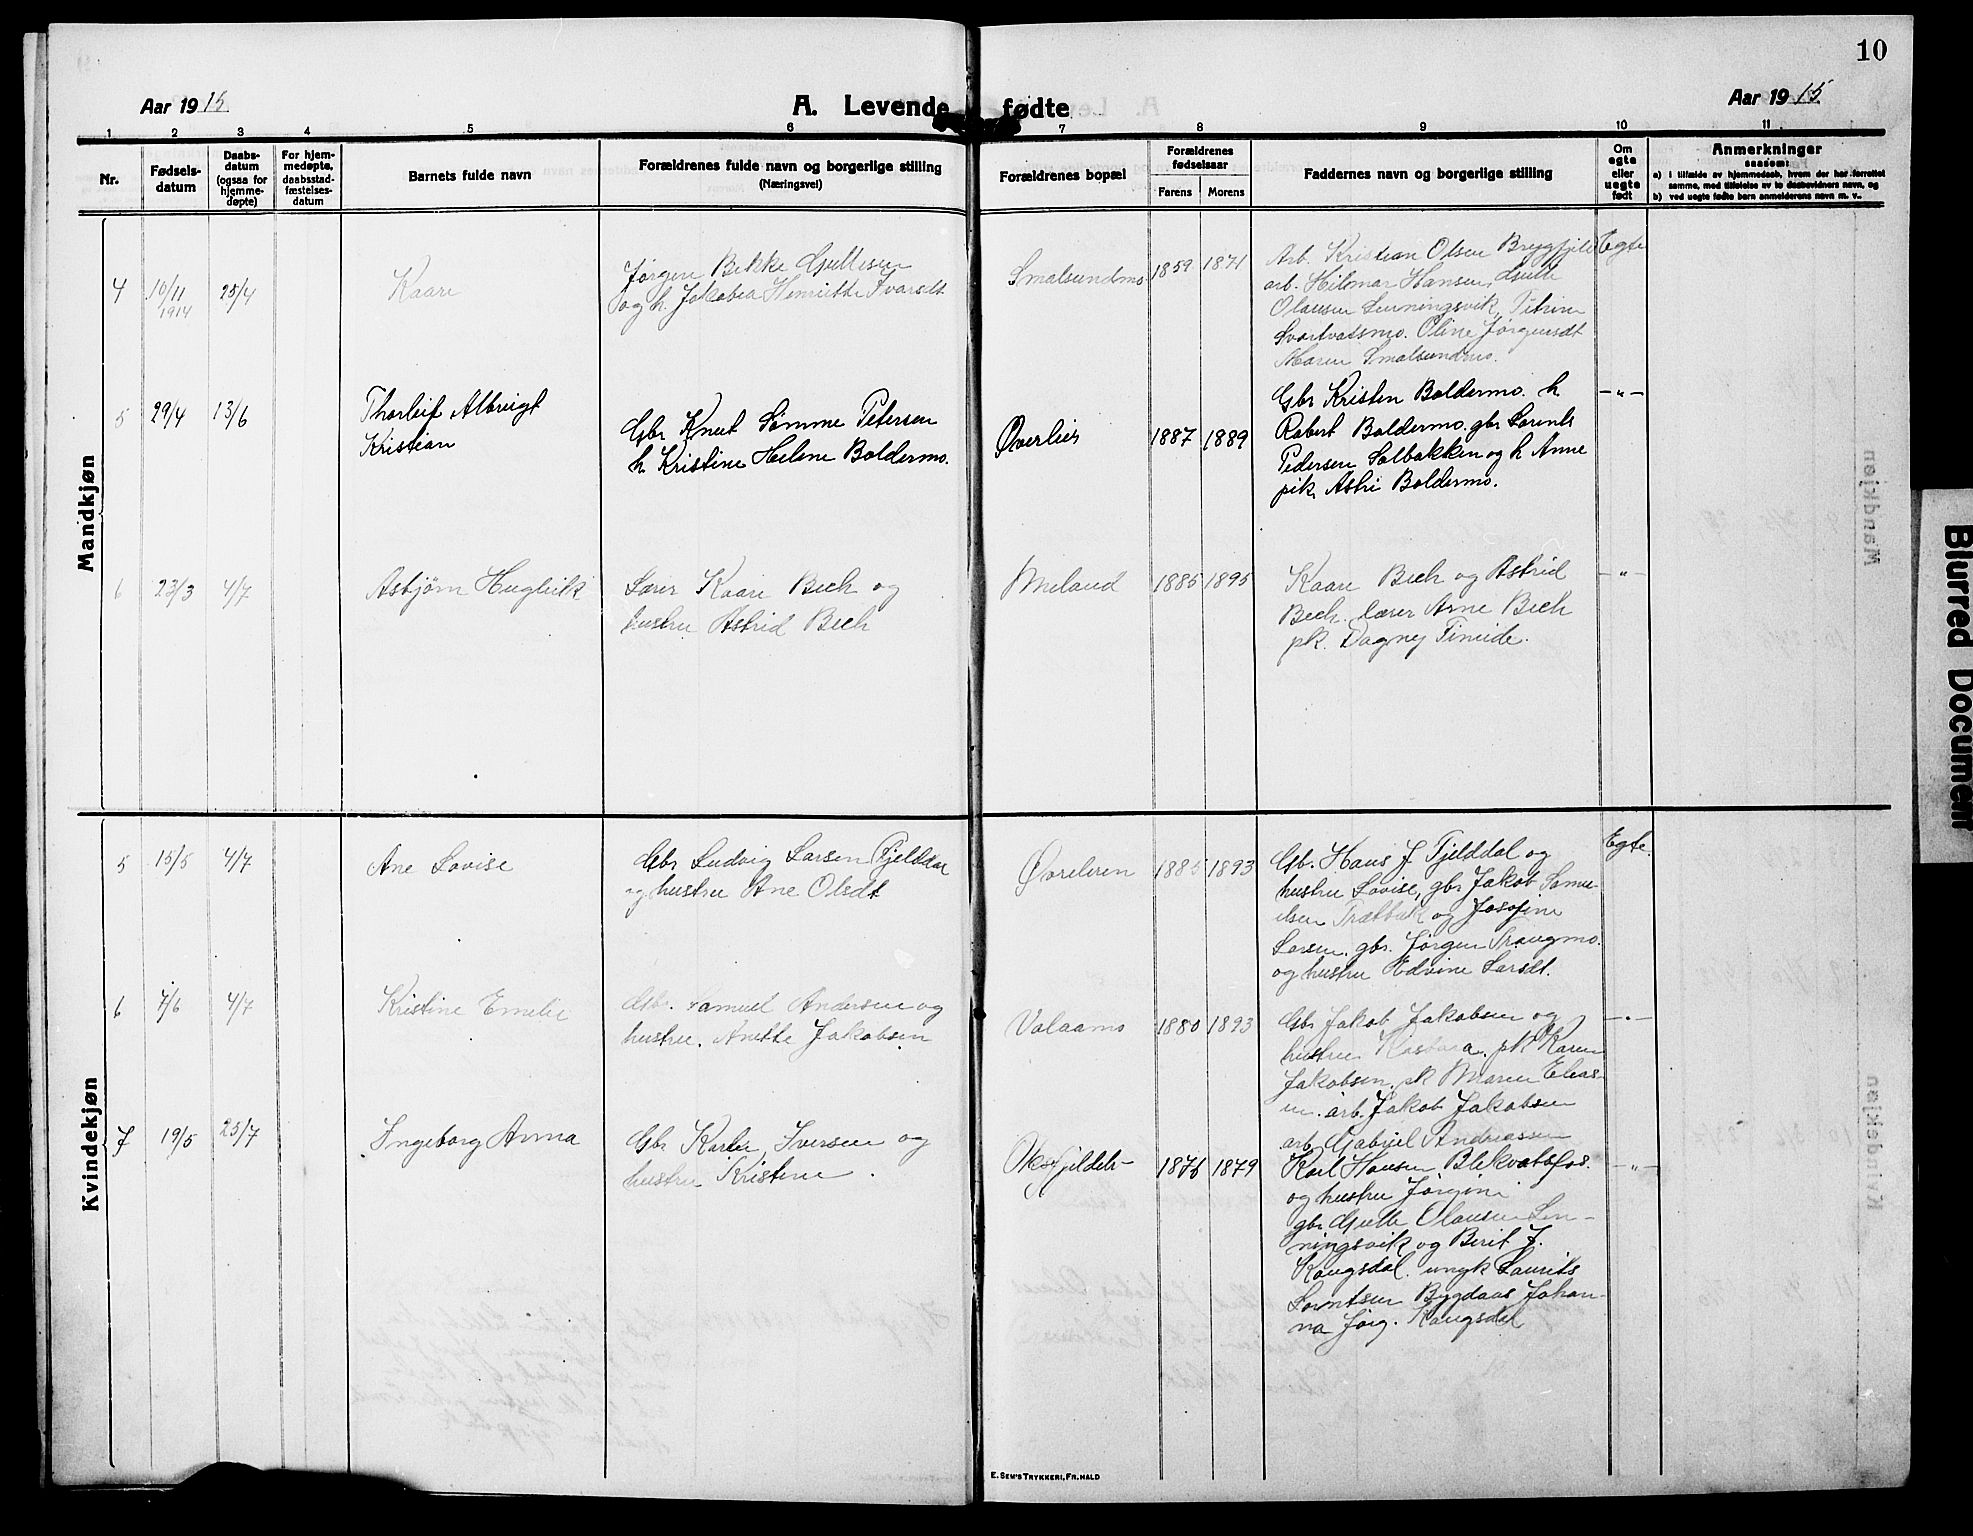 10
Aar 1915
A. Levende fødte
Aar 1915
1 2 3 4 5 6 7 8 9 10 11
Nr.
Fødsels-
datum
Daabs-
datum
(ogsaa for
hjemme-
døpte)
For hjem-
medøpte,
daabsstad-
fæstelses-
datum
Barnets fulde navn
Forældrenes fulde navn og borgerlige stilling
(Næringsvei)
Forældrenes bopæl
Forældrenes
fødselsaar
Farens Morens
Faddernes navn og borgerlige stilling
Om
egte
eller
uegte
født
Anmerkninger
saasom:
a) i tilfælde av hjemmedaab, hvem der har forrettet
samme, med tilføielse av to daabsvidners navn, og
b) ved uegte fødte barn anmelderens navn m. v..
Mandkjøn
4 10/11 1914 25/4 Kaare
Jørgen Bekke Gullesen
og h. Jakobea Henriette Ivarsdt
Smalsundmo 1859 1871
Arb. Kristian Olsen Brygfjeld
arb. Hilmar Hansen,
Olausen Lenningsvik, Petrine
Svartvatsmo. Oline Jørgensdt
Maren Smalsundmo.
Egte
5 29/4 13/6 Thorleif Albreigt
Kristian
Gbr Knut Sømme Petersen
h. Kristine Helene Boldermo.
Øverlier 1887 1889
Gbr Kristen Boldermo. h
Robert Boldermo. gbr Lorents
Pedersen Solbakken og h Anne
pik Astri Boldermo.
-"-
6 23/3 4/7 Asbjørn Hugleik
Lærer Kaare Bech og
hustru Astrid Bech
Meland 1885 1895
Kaare Bech og Astrid
Bech. lærer Arne Bech
pk. Dagny Timide.
-"-
Kvindekjøn
5 15/5 4/7 Ane Lovise
Gbr Ludvig Larsen Fjelddal
og hustru Ane Olsdt
Øvreleren 1885 1893
Gb. Hans J. Fjelddal og
hustru Lovise, gbr Jakob Samu-
elsen Trætbak og Josefine
Larsen. gbr. Jørgen Trangmo.
og hustru Edvine Larsdt.
Egte.
6 7/6 4/7 Kristine Emelie
Gbr. Samuel Andersen og
hustru. Anette Jakobsen
Valaamo 1880 1893
Gbr Jakob Jakobsen og
hustru pk Karen
Jakobsen. pk Maren Elias-
en. arb. Jakob Jakobsen
arb Gabriel Andreassen
-"-
7 19/5 25/7 Ingeborg Anna
Gbr Karler Iversen og
hustru Kristine.
Oksfjeldel- 1876 1879
Karl Hansen Blekvatsfos.
og hustru Jørgine
gbr Gulle Olausen Len-
ningsvik og Berit J.
Kongsdal. ungk Laurits
Lorntsen Bygdaas Johan-
na Jørg. Kongsdal
-"-
E. Sem's Trykkeri, Fr.hald
Blurred Document